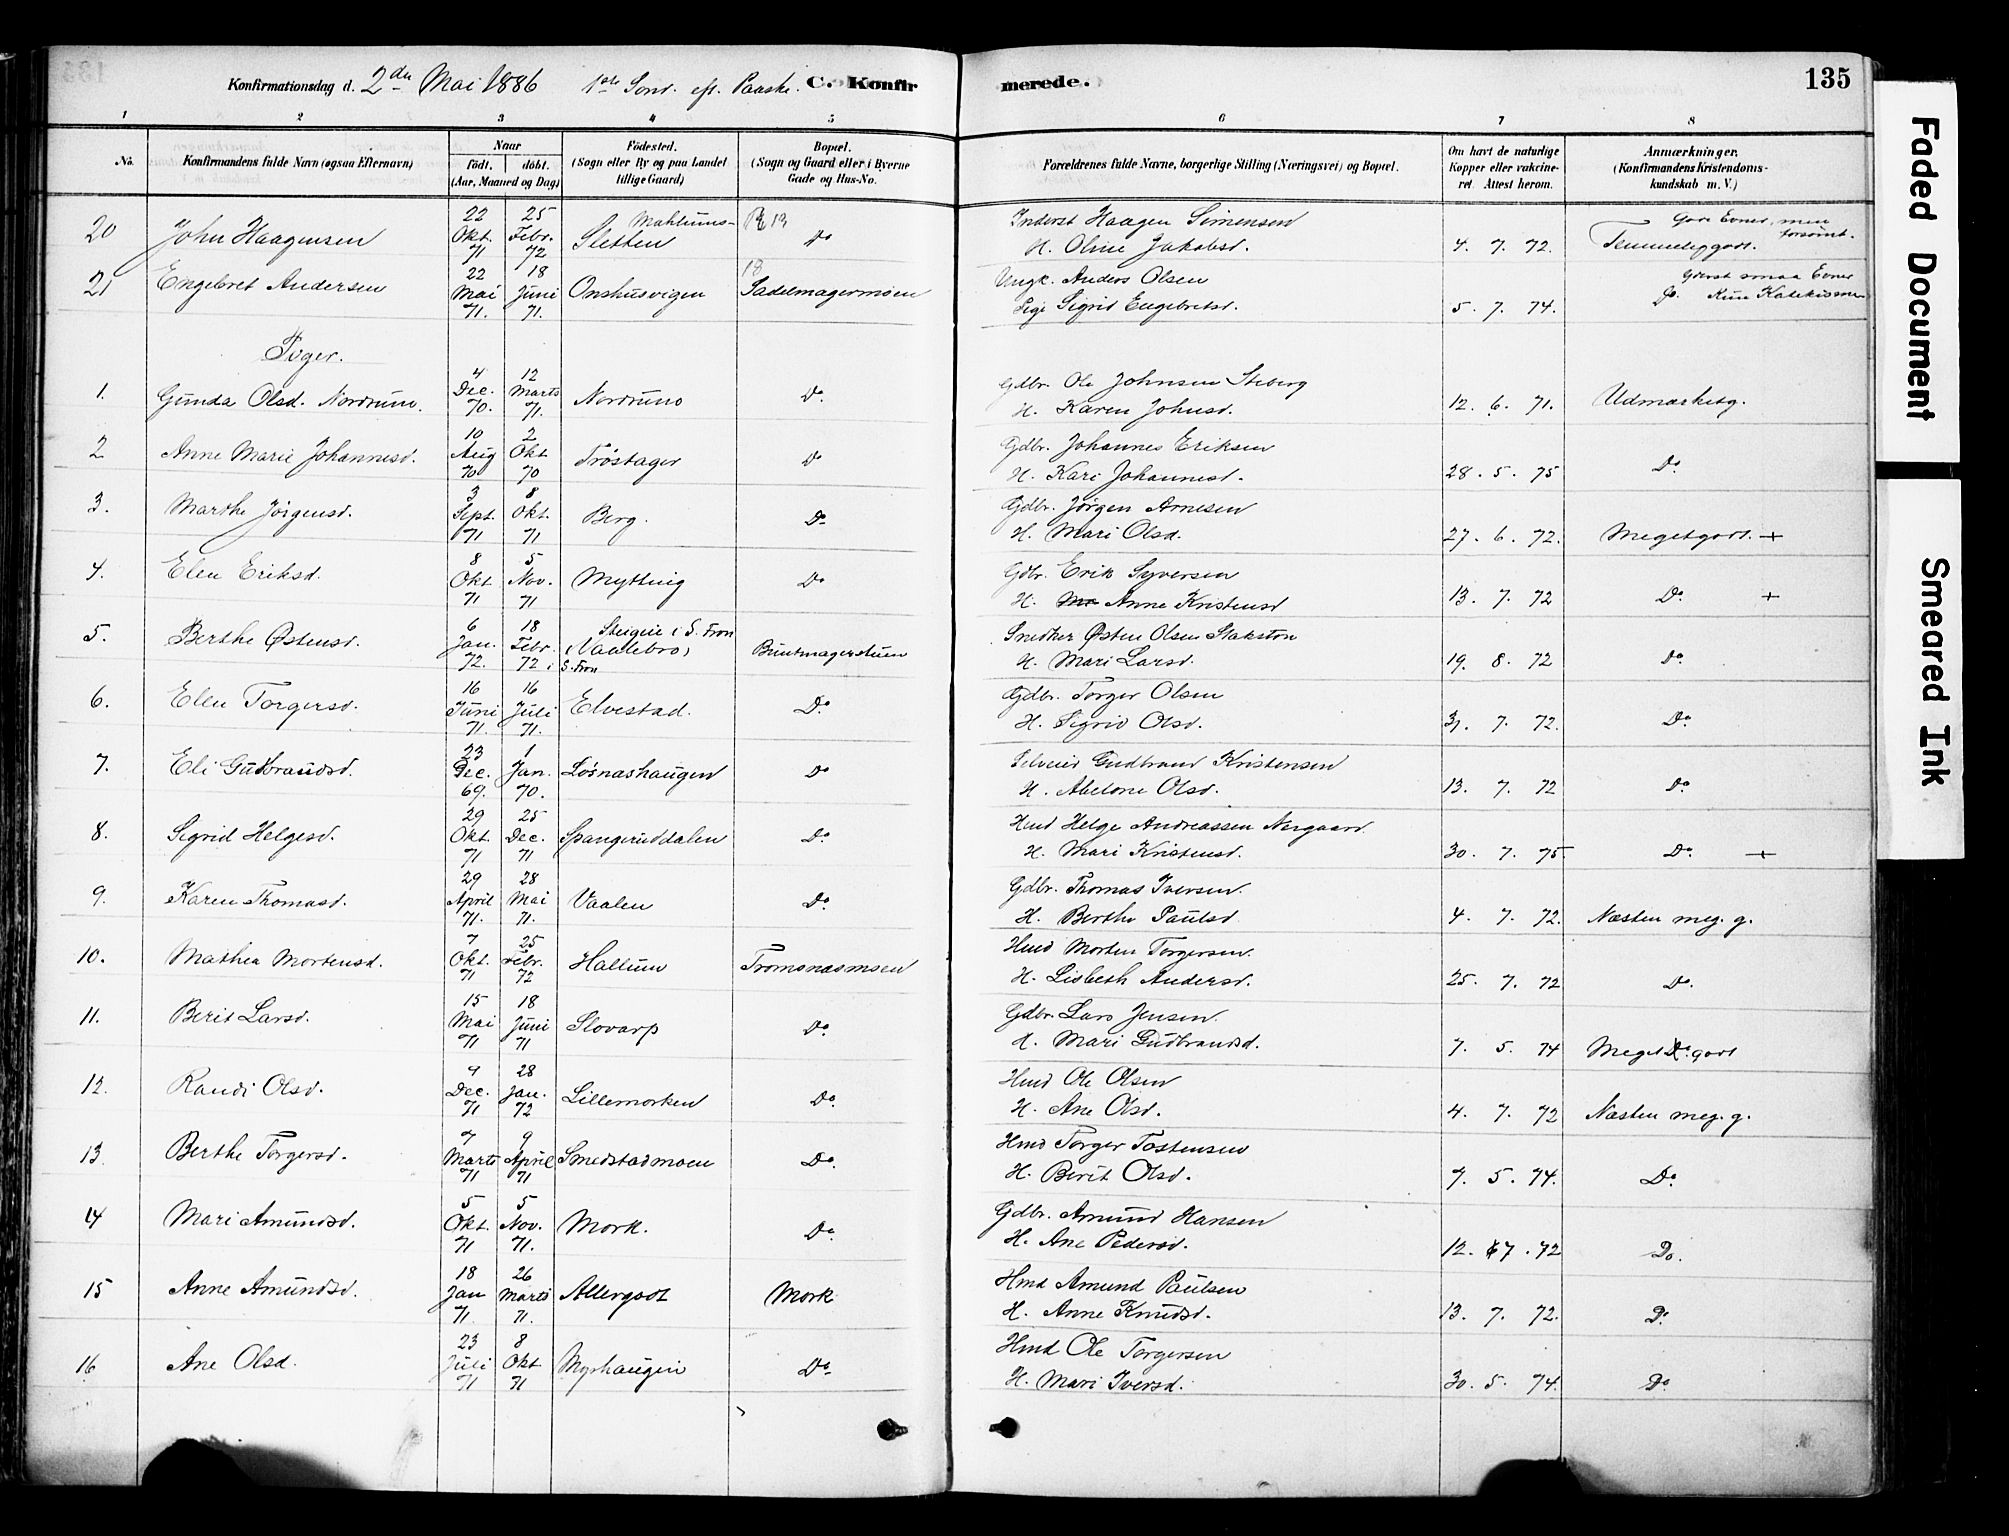 Konfirmationsdag d. 2den Mai 1886 1ste Sønd. eft. Paaske. C. Konfirmerede. 135
1 2 3 4 5 6 7 8
No. Konfirmandens fulde Navn (ogsaa Efternavn) Naar født. døbt. (Aar, Maaned og Dag) Fødested. (Sogn eller By og paa Landet tillige Gaard) Bopæl. (Sogn og Gaard eller i Byerne Gade og Hus-No. Forældrenes fulde Navne, borgerlige Stilling (Næringsvei) og Bopæl. Om havt de naturlige Kopper eller vakcineret. Attest herom. Anmærkninger. (Konfirmandens Kristendomskundskab m. V.)
20 John Haagensen 22 Okt. 71 25 Febr. 72 Mahlums-Sletten 13 Do Inderst Haagen Simensen H. Oline Jakobsd. 4. 7. 72. Temmeliggodt. Gode Evner, men forsømt.
21 Engebret Andersen 22 Mai 71. 18 Juni 71. Onshusvigen 18 Sadelmagermoen Ungk. Anders Olsen Pige Sigrid Engebretsd. 5. 7. 74. Do. Yderst smaa Evner Kun Katekismen
Piger.
1. Gunda Olsd. Nordrum. 4 Dec. 70. 12 Marts 71. Nordrum Do. Gdbr. Ole Johnsen Steberg H. Karen Johnsd. 12. 6. 71. Udmærketg.
2 Anne Marie Johannesd. 10 Aug 70 2 Okt 70 Trøstager Do Gdbr. Johannes Eriksen H. Kari Johannesd. 28. 5. 75 Do.
3. Marthe Jørgensd. 3 Sept. 71 8 Okt. 71 Berg. Do Gdbr. Jørgen Arnesen H. Mari Olsd. 27. 6. 72. Megetgodt. +
4. Elen Eriksd. 8 Okt. 71 5 Nov. 71 Mytting Do Gdbr. Erik Syversen H. Anne Kristensd 13. 7. 72 Do. +
5. Berthe Østensd. 6 Jan. 72. 18 Febr. 72 Steigen i S. Fron (Vaalebro) i S. Fron Buntmagerstuen Snedker Østen Olsen Stakston H. Mari Larsd. 19. 8. 72 Do.
6. Elen Torgersd. 16 Juni 71. 16 Juli 71. Elvestad. Do. Gdbr. Torger Olsen H. Sigrid Olsd. 31. 7. 72. Do.
7. Eli Gudbrandsd. 23 Dec. 69. 1 Jan. 70. Løsnashaugen Do Selveier Gudbrand Kristensen H. Abelone Olsd. 13. 7. 72 Do.
8. Sigrid Helgesd. 29 Okt. 71 25 Dec. 71 Spangruddalen Do. Hmd Helge Andreassen Nergaard H. Mari Kristensd. 30. 7. 75. Do. +
9. Karen Thomasd. 29 April 71. 28 Mai 71. Vaalen Do. Gdbr. Thomas Iversen. H. Berthe Paulsd. 4. 7. 72. Næsten meg. g.
10. Mathea Mortensd. 7 Okt. 71 25 Febr. 72 Hallum Tromsnæsmoen Hmd Morten Torgersen. H. Lisbeth Andersd. 25. 7. 72 Do.
11. Berit Larsd. 15 Mai 71 18 Juni 71 Slovarp Do. Gdbr. Lars Jensen. H. Mari Gudbrandsd. 7. 5. 74 Meget godt
12. Randi Olsd. 4 Dec. 71 28 Jan. 72 Lillemorken Do. Hmd Ole Olsen H. Ane Olsd. 4. 7. 72 Næsten meg. g.
13. Berthe Torgersd. 7 Marts 71 9 April 71 Smedstadmoen Do. Hmd Torger Tostensen H. Berit Olsd. 7. 5. 74. Do.
14 Mari Amundsd. 5 Okt. 71 5 Nov. 71. Mork. Do. Gdbr. Amund Hansen H. Ane Pedersd. 12. 7. 72 Do.
15 Anne Amundsd. 18 Jan 71. 26 Marts 71. Allergodt Mork Hmd Amund Paulsen H. Anne Knudsd. 13. 7. 72. Do.
16 Ane Olsd. 23 Juli 71 8 Okt 71 Myrhaugen Do. Hmd Ole Torgersen H. Mari Iversd. 30. 5. 74. Do.
Faded Document
Smeared Ink